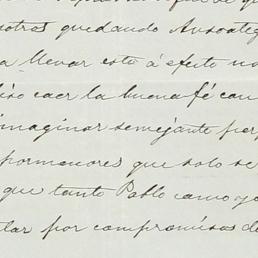 otros quedando Ansoateg
a llevar esto á efeto no
caer la buena fé con
imaginar semejante
pormenores que solo se
que tanto Pablo como yo
por compromisos de